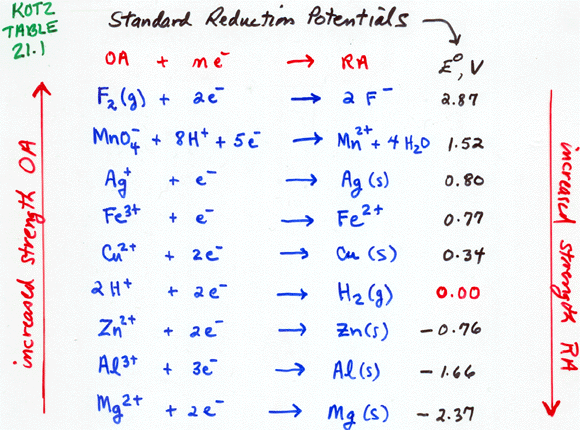 KOTZ
TABLE
21.1
Standard Reduction Potentials
OA + ne⁻ → RA E⁰, V
F₂(g) + 2e⁻ → 2 F⁻ 2.87
MnO₄⁻ + 8H⁺ + 5e⁻ → Mn²⁺ + 4H₂O 1.52
Ag⁺ + e⁻ → Ag(s) 0.80
Fe³⁺ + e⁻ → Fe²⁺ 0.77
Cu²⁺ + 2e⁻ → Cu(s) 0.34
2H⁺ + 2e⁻ → H₂(g) 0.00
Zn²⁺ + 2e⁻ → Zn(s) -0.76
Al³⁺ + 3e⁻ → Al(s) -1.66
Mg²⁺ + 2e⁻ → Mg(s) -2.37
increased strength OA
increased strength RA